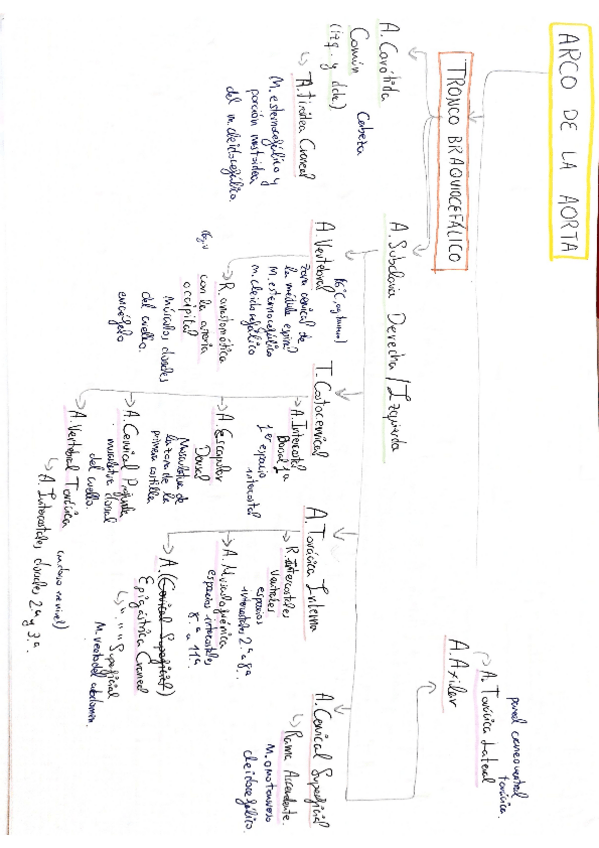 ARCO DE LA AORTA
TRONCO BRAQUIOCEFÁLICO
A. Carótida
Común
(izq. y dch.)
Cabeza
↳ A. tiroidea Craneal
M. esternocefálico y
porción mastoidea
del m. cleidocefálico.
A. Subclavia Derecha / Izquierda
A. Vertebral
zona cervical de
la médula espinal
M. esternocefálico
m. cleidocefálico
R. anastomótica
con la arteria
occipital
Músculos dorsales
del cuello.
encéfalo
T. Costocervical
A. Intercostal
Dorsal 1ª
1er espacio
intercostal
A. Escapular
Dorsal
Musculatura de
la zona de la
primera costilla
A. Cervical Profunda
musculatura dorsal
del cuello.
A. Vertebral Torácica
↳ A. Intercostales dorsales 2ª y 3ª.
A. Torácica Interna
R. Intercostales
Ventrales
espacios
intercostales 2ª-8ª.
A. Musculofrénica
espacios intercostales
8ª-11ª.
A. (Cervical Superficial)
Epigástrica Craneal
↳ " " " Superficial
M. recto del abdomen.
A. Cervical Superficial
↳ Rama Ascendente.
M. omotransverso
cleidocefálico.
A. Axilar
A. Torácica Lateral
pared craneoventral
torácica.